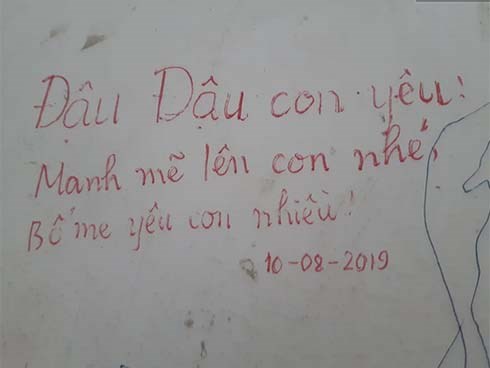 Đậu Dậu con yêu!
Manh mẽ lên con nhé,
Bố mẹ yêu con nhiều!
10-08-2019